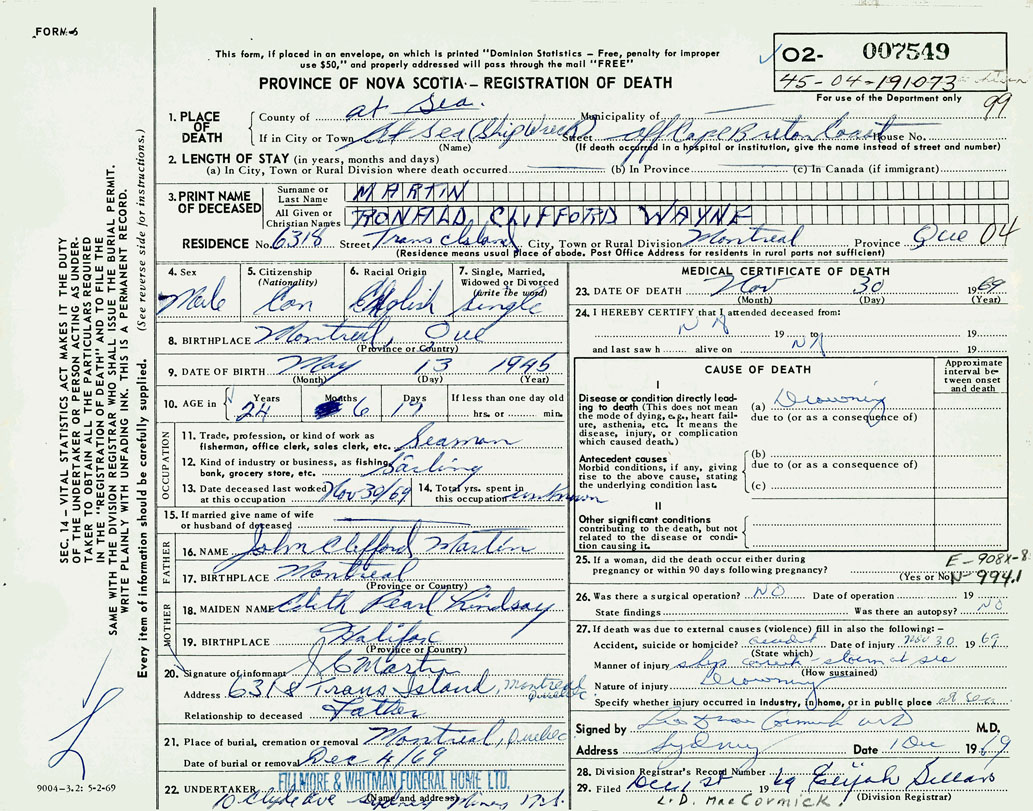 FORM-6
This form, if placed in an envelope, on which is printed "Dominion Statistics - Free, penalty for improper
use $50," and properly addressed will pass through the mail "FREE"
PROVINCE OF NOVA SCOTIA - REGISTRATION OF DEATH
02- 007549
45-04-191073
For use of the Department only
99
1. PLACE OF DEATH
County of at Sea. Municipality of
If in City or Town At Sea (Ship Wreck) Street off Cape Breton Coast House No.
(Name) (If death occurred in a hospital or institution, give the name instead of street and number)
2. LENGTH OF STAY (in years, months and days)
(a) In City, Town or Rural Division where death occurred (b) In Province (c) In Canada (if immigrant)
3. PRINT NAME OF DECEASED
Surname or Last Name MARTIN
All Given or Christian Names RONALD CLIFFORD WAYNE
RESIDENCE No. 6318 Street Trans Island City, Town or Rural Division Montreal Province Que 04
(Residence means usual place of abode. Post Office Address for residents in rural parts not sufficient)
4. Sex Male
5. Citizenship (Nationality) Can
6. Racial Origin English
7. Single, Married, Widowed or Divorced (write the word) Single
8. BIRTHPLACE Montreal, Que
(Province or Country)
9. DATE OF BIRTH May 13 1945
(Month) (Day) (Year)
10. AGE in Years 24 Months 6 Days 17 If less than one day old hrs. or min.
OCCUPATION
11. Trade, profession, or kind of work as
fisherman, office clerk, sales clerk, etc. Seaman
12. Kind of industry or business, as fishing,
bank, grocery store, etc. Sailing
13. Date deceased last worked
at this occupation Nov 30/69
14. Total yrs. spent in
this occupation unknown
15. If married give name of wife
or husband of deceased
FATHER
16. NAME John Clifford Martin
17. BIRTHPLACE Montreal
(Province or Country)
MOTHER
18. MAIDEN NAME Edith Pearl Lindsay
19. BIRTHPLACE Halifax
(Province or Country)
20. Signature of informant J C Martin
Address 6318 Trans Island, Montreal Quebec
Relationship to deceased Father
21. Place of burial, cremation or removal Montreal, Quebec
Date of burial or removal Dec 4/69
22. UNDERTAKER FILLMORE & WHITMAN FUNERAL HOME LTD.
(Name and address)
10 Clyde Ave Sydney Mines N.S.
MEDICAL CERTIFICATE OF DEATH
23. DATE OF DEATH Nov 30 1969
(Month) (Day) (Year)
24. I HEREBY CERTIFY that I attended deceased from:
NA 19 to 19
and last saw h alive on NA 19
CAUSE OF DEATH
Approximate interval between onset and death
I
Disease or condition directly leading to death (This does not
mean the mode of dying, e.g., heart failure,
asthenia, etc. It means the
disease, injury, or complication
which caused death.)
(a) Drowning
due to (or as a consequence of)
Antecedent causes
Morbid conditions, if any, giving
rise to the above cause, stating
the underlying condition last.
(b)
due to (or as a consequence of)
(c)
II
Other significant conditions
contributing to the death, but not
related to the disease or condition
causing it.
25. If a woman, did the death occur either during
pregnancy or within 90 days following pregnancy? (Yes or No)
E-908X-8
N-994.1
26. Was there a surgical operation? NO Date of operation 19
State findings Was there an autopsy? NO
27. If death was due to external causes (violence) fill in also the following: -
Accident, suicide or homicide? accident Date of injury Nov 30 1969
(State which)
Manner of injury ship wreck - storm at sea
(How sustained)
Nature of injury Drowning
Specify whether injury occurred in Industry, in home, or in public place at sea
Signed by M.D.
Address Sydney Date 1 Dec 1969
28. Division Registrar's Record Number
29. Filed Dec 1st 1969 Elijah
(Division Registrar)
L.D. MacCormick.
SEC. 14 - VITAL STATISTICS ACT MAKES IT THE DUTY
OF THE UNDERTAKER OR PERSON ACTING AS UNDER-
TAKER TO OBTAIN ALL THE PARTICULARS REQUIRED
IN THE "REGISTRATION OF DEATH" AND TO FILE THE
SAME WITH THE DIVISION REGISTRAR WHO SHALL ISSUE THE BURIAL PERMIT.
WRITE PLAINLY WITH UNFADING INK. THIS IS A PERMANENT RECORD.
Every item of information should be carefully supplied. (See reverse side for instructions.)
9004-3.2: 5-2-69